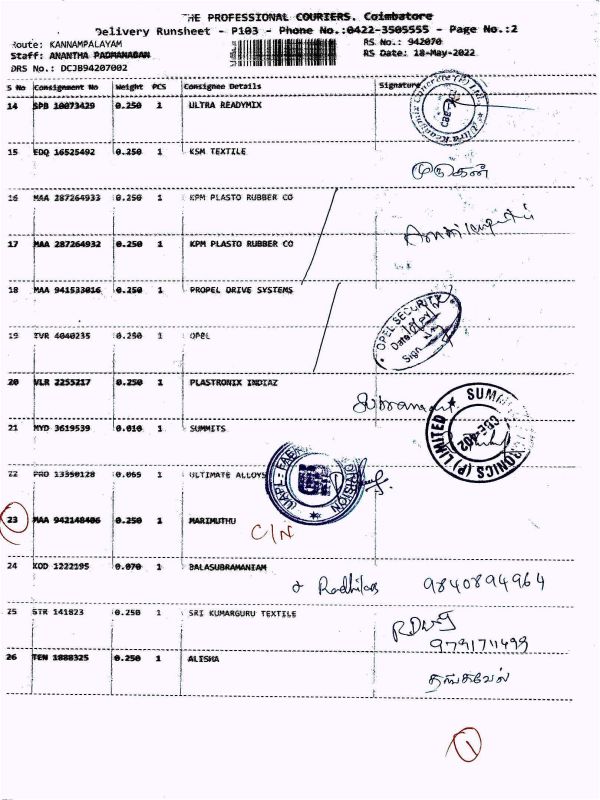 THE PROFESSIONAL COURIERS. Coimbatore
Delivery Runsheet - P103 - Phone No.:0422-3505555 - Page No.:2
Route: KANNAMPALAYAM
RS No.: 942070
Staff: ANANTHA PADMANABAN
RS Date: 18-May-2022
DRS No.: DCJB94207002
S No Consignment No Weight PCS Consignee Details Signature
14 SPB 10073429 0.250 1 ULTRA READYMIX
15 EDQ 16525492 0.250 1 KSM TEXTILE
முருகன்
16 MAA 287264933 0.250 1 KPM PLASTO RUBBER CO
17 MAA 287264932 0.250 1 KPM PLASTO RUBBER CO
18 MAA 941533016 0.250 1 PROPEL DRIVE SYSTEMS
OPEL SECURITY
Date
Sign
19 TVR 4040235 0.250 1 OPEL
20 VLR 2255217 0.250 1 PLASTRONIX INDIAZ
21 MYD 3619539 0.010 1 SUMMITS
(P) LIMITED ★
22 PRO 13350128 0.065 1 ULTIMATE ALLOYS
23 MAA 942148406 0.250 1 MARIMUTHU
C/N
24 KOD 1222195 0.070 1 BALASUBRAMANIAM
9840894964
25 STR 141823 0.250 1 SRI KUMARGURU TEXTILE
26 TEN 1888325 0.250 1 ALISHA
தங்கவேல்
1